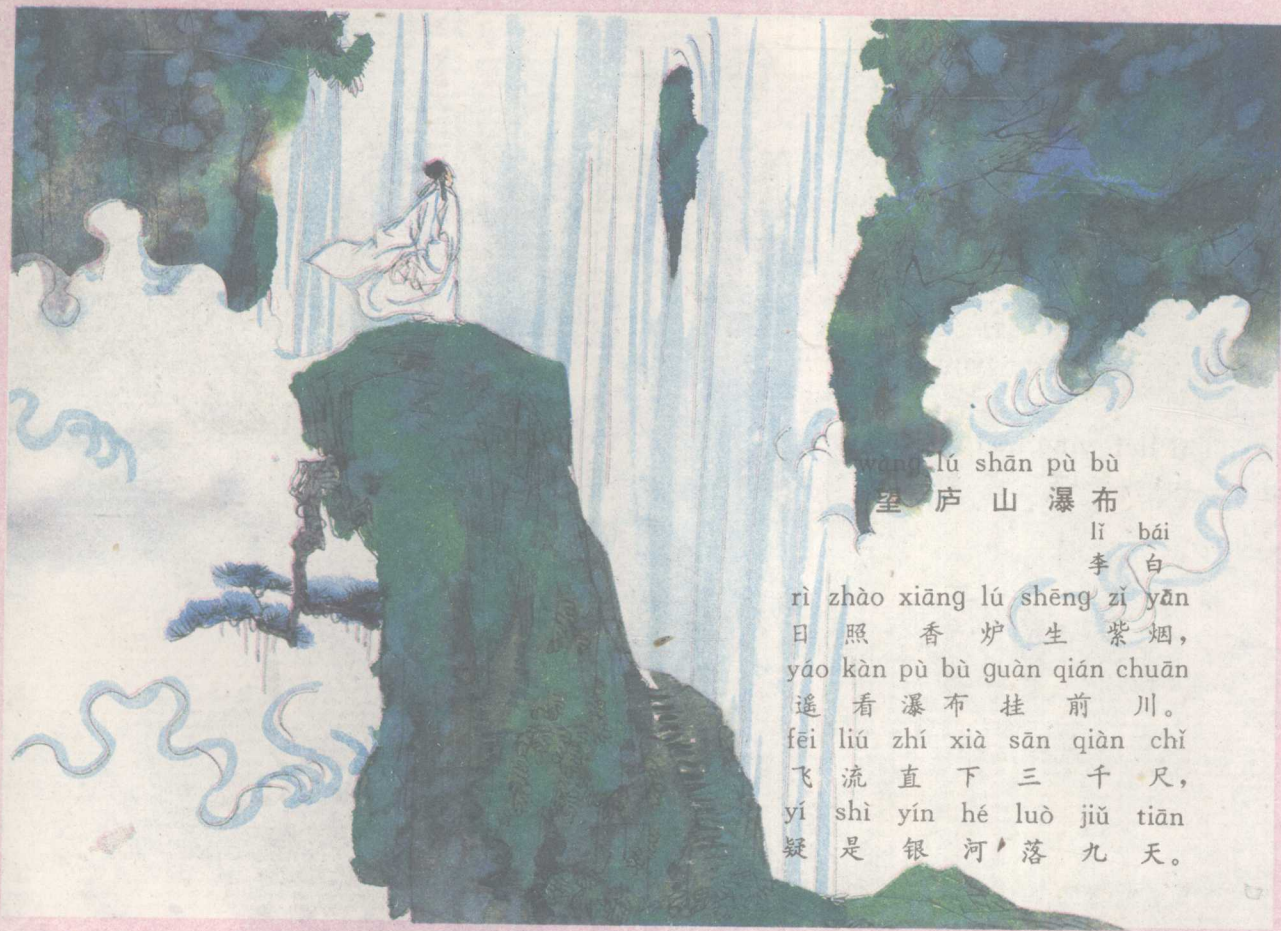 wàng lú shān pù bù
望庐山瀑布
lǐ bái
李白
rì zhào xiāng lú shēng zǐ yān
日照香炉生紫烟，
yáo kàn pù bù guàn qián chuān
遥看瀑布挂前川。
fēi liú zhí xià sān qiàn chǐ
飞流直下三千尺，
yí shì yín hé luò jiǔ tiān
疑是银河落九天。